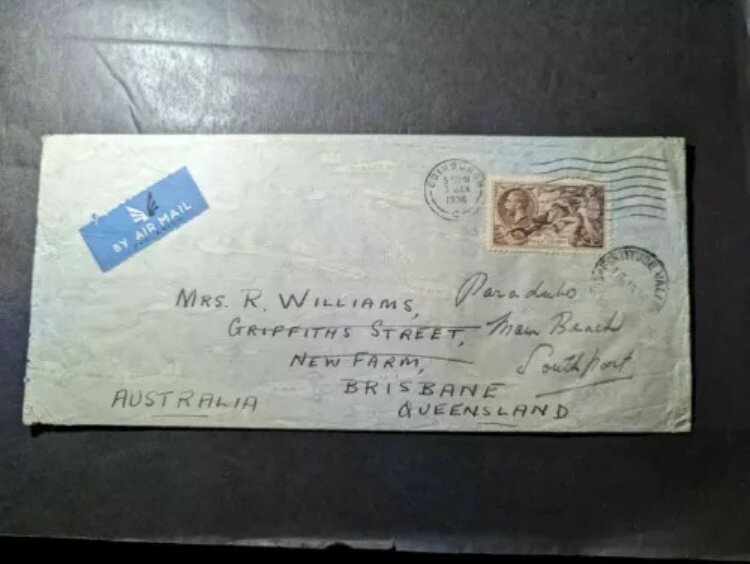 BY AIR MAIL
EDINBURGH
JAN
1936
C
MRS. R. WILLIAMS,
GRIFFITHS STREET,
NEW FARM,
BRISBANE
QUEENSLAND
AUSTRALIA
Main Beach
Southport